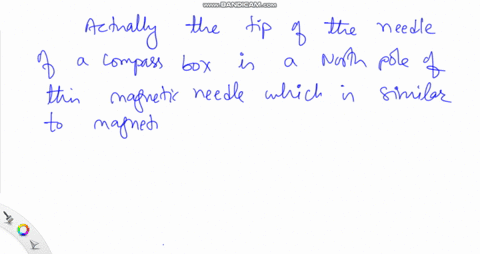 www.BANDICAM.com
Actually the tip of the needle
of a compass box is a North pole of
this magnetic needle which is similar
to magneti